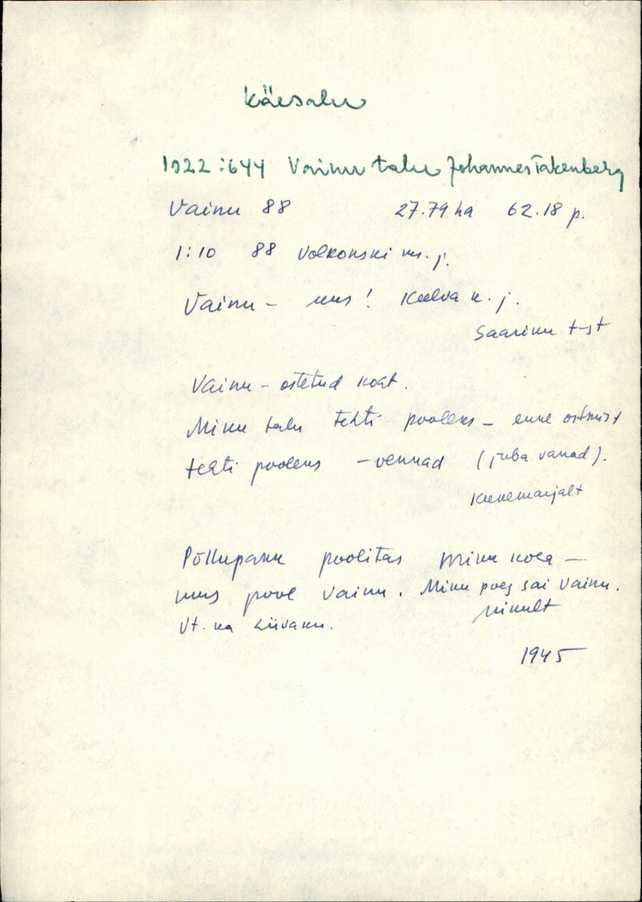 Käesalu
1922:644 Vainu talu Johannes Takenberg
Vainu 88 27.79 ha 62.18 p.
1:10 88 Volkonski m. j.
Vainu – uus! Keelva k. j.
Saarinu t-st
Vainu – ostetud koht.
Minu talu tehti pooleks – enne ostmist
tehti pooleks – vennad (juba vanad).
Põllupanu poolitas minu koha –
uus pool Vainu. Minu poeg sai Vainu.
Vt. ka Liivanu. minult
1945